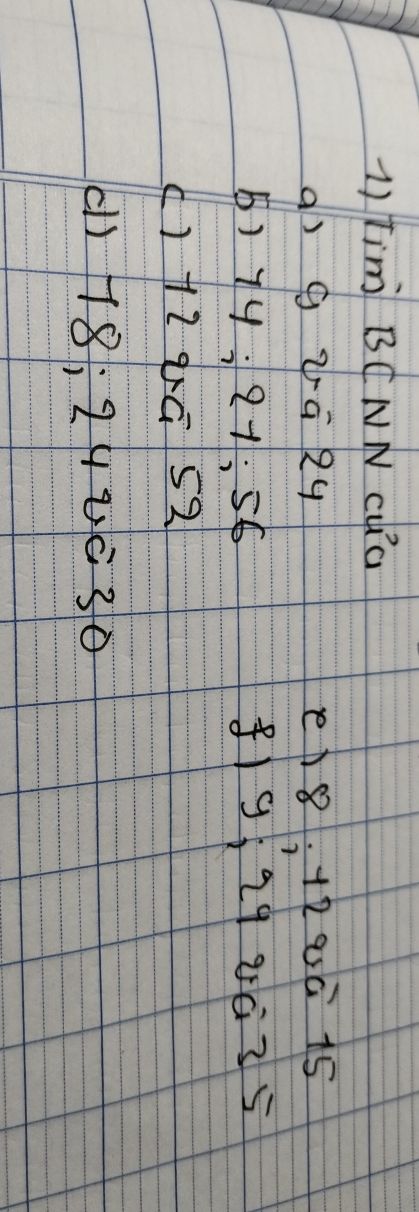 1) Tìm BCNN của
a) 9 và 24
b) 14; 21; 56
c) 12 và 52
d) 18; 24 và 30
e) 8; 12 và 15
f) 9; 24 và 35